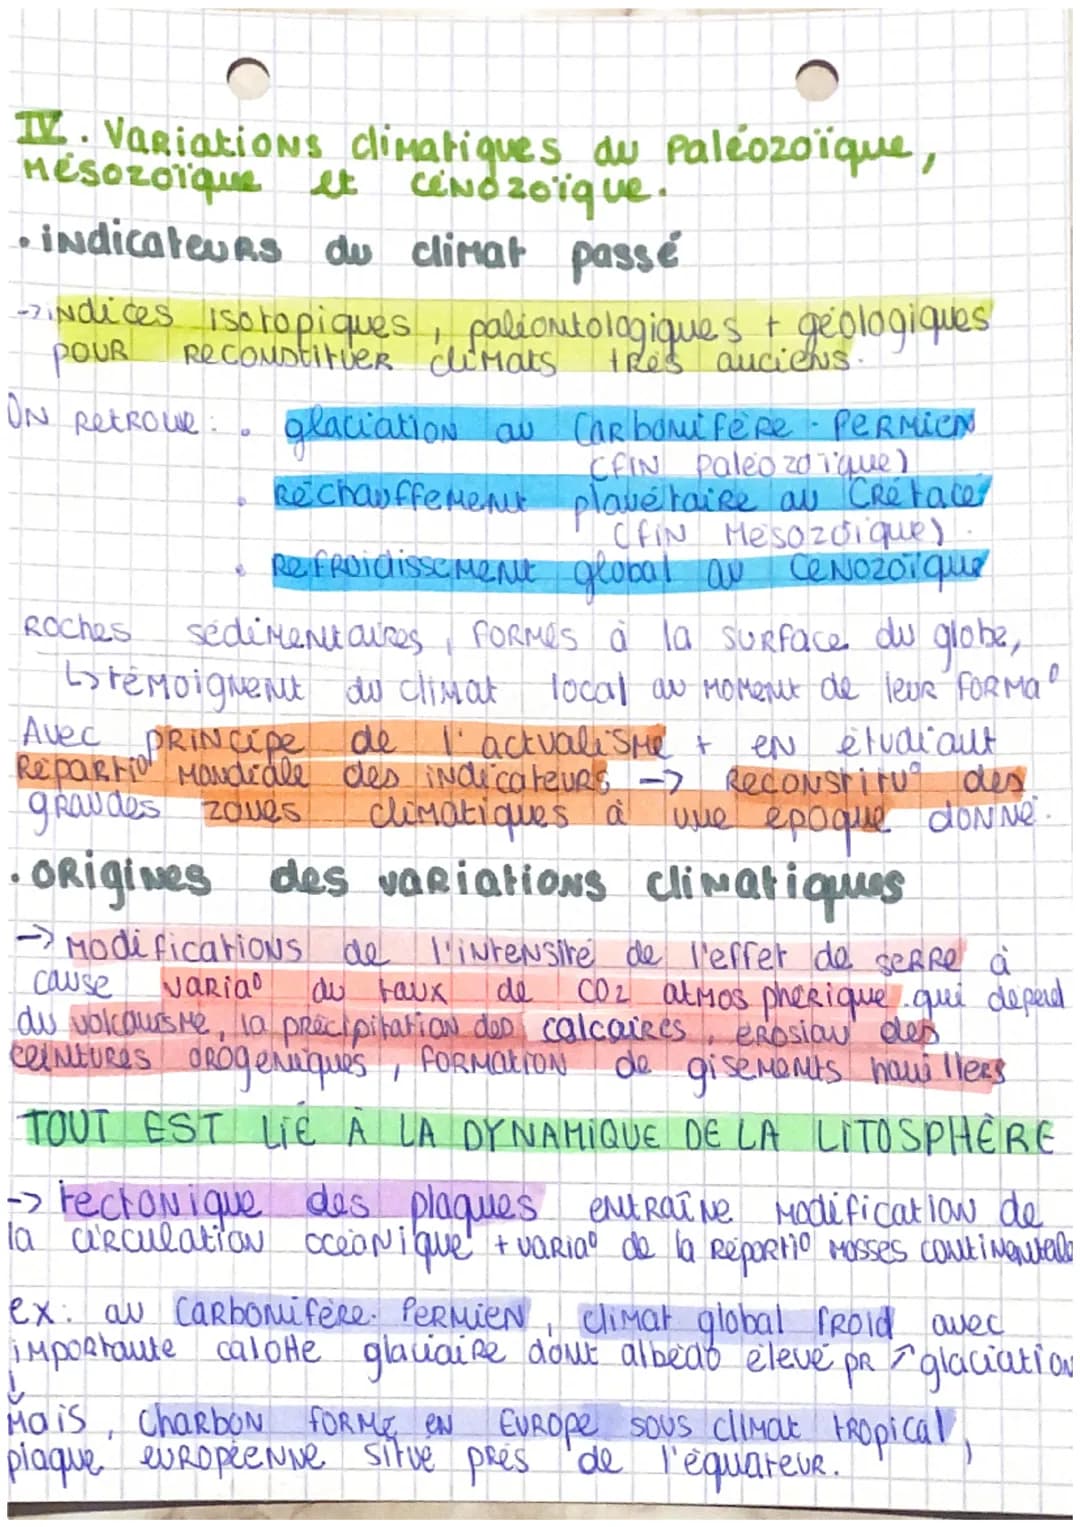 IV. Variations climatiques du Paléozoïque,
Mésozoïque et Cénozoïque.
• indicateurs du climat passé
-> indices isotopiques, paléontologiques + géologiques
pour reconstituer climats très anciens.
On retrouve : • glaciation au Carbonifère - Permien
(fin paléozoïque)
• Réchauffement planétaire au Crétacé
(fin Mésozoïque).
• Refroidissement global au Cénozoïque
Roches sédimentaires, formés à la surface du globe,
↳ témoignent du climat local au moment de leur forma°
Avec principe de l'actualisme + en étudiant
Répartio° mondiale des indicateurs -> Reconstitu° des
grandes zones climatiques à une époque donné.
• Origines des variations climatiques
-> Modifications de l'intensité de l'effet de serre à
cause varia° du taux de CO2 atmosphérique qui dépend
du volcanisme, la précipitation des calcaires, érosion des
ceintures orogéniques, formation de gisements houillers
TOUT EST LIÉ À LA DYNAMIQUE DE LA LITOSPHÈRE
-> tectonique des plaques entraîne modification de
la circulation océanique + varia° de la répartio° masses continentale
ex: au Carbonifère-Permien, climat global froid avec
importante calotte glaciaire dont albédo élevé pr ↗ glaciation
↓
Mais, charbon formé en Europe sous climat tropical,
plaque européenne située près de l'équateur.